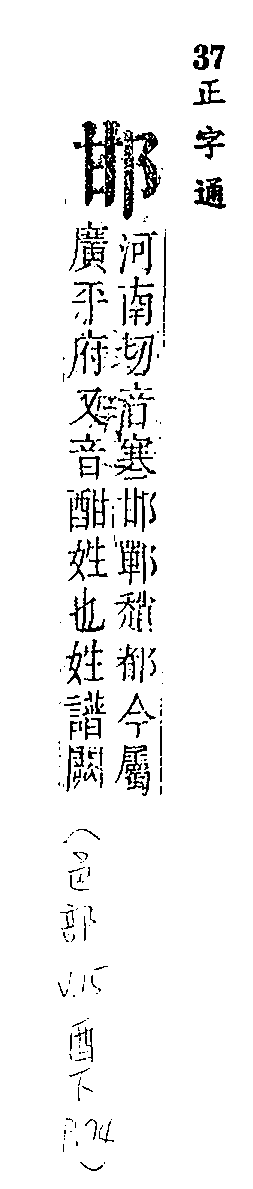 37正字通
邯
河南切音寒邯鄲今屬
廣平府又音酣姓也姓譜闕
(邑部 V.15 酉下 P.74)